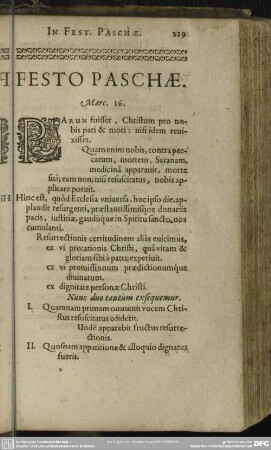 IN FEST. PASCHÆ. 219
FESTO PASCHÆ.
Marc. 16.
PARUM fuisset, Christum pro no-
bis pati & mori: nisi idem revi-
xisset.
Quam enim nobis, contra pec-
catum, mortem, Satanam,
medicinã apparavit, morte
suâ; eam non, nisi resuscitatus, nobis ap-
plicare potuit.
Hinc est, quòd Ecclesia vniversa, hoc ipso die, ap-
plaudit resurgenti, præstantissimisque donariis
pacis, iustitiæ, gaudiique in Spiritu sancto, nos
cumulanti.
Resurrectionis certitudinem aliàs euicimus,
ex vi precationis Christi, quâ vitam &
gloriam sibi à patre expetiuit.
ex vi promissionum prædictionumque
diuinatum.
ex dignitate personæ Christi.
Nunc duo tantùm exsequemur.
I. Quamnam primam omnium vocem Chri-
stus resuscitatus ediderit.
Unde apparebit fructus resurre-
ctionis.
II. Quosnam apparitione & alloquio dignatus
fuerit.